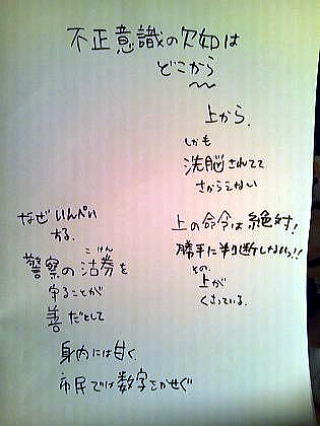 不正意識の欠如は
どこから
上から、
しかも
洗脳されてて
さからえない
上の命令は絶対!
勝手に判断しないっ!!
その、
上が
くさっている。
なぜいんぺい
する。
こけん
警察の沽券を
守ることが
善だとして
身内には甘く、
市民では数字をかせぐ